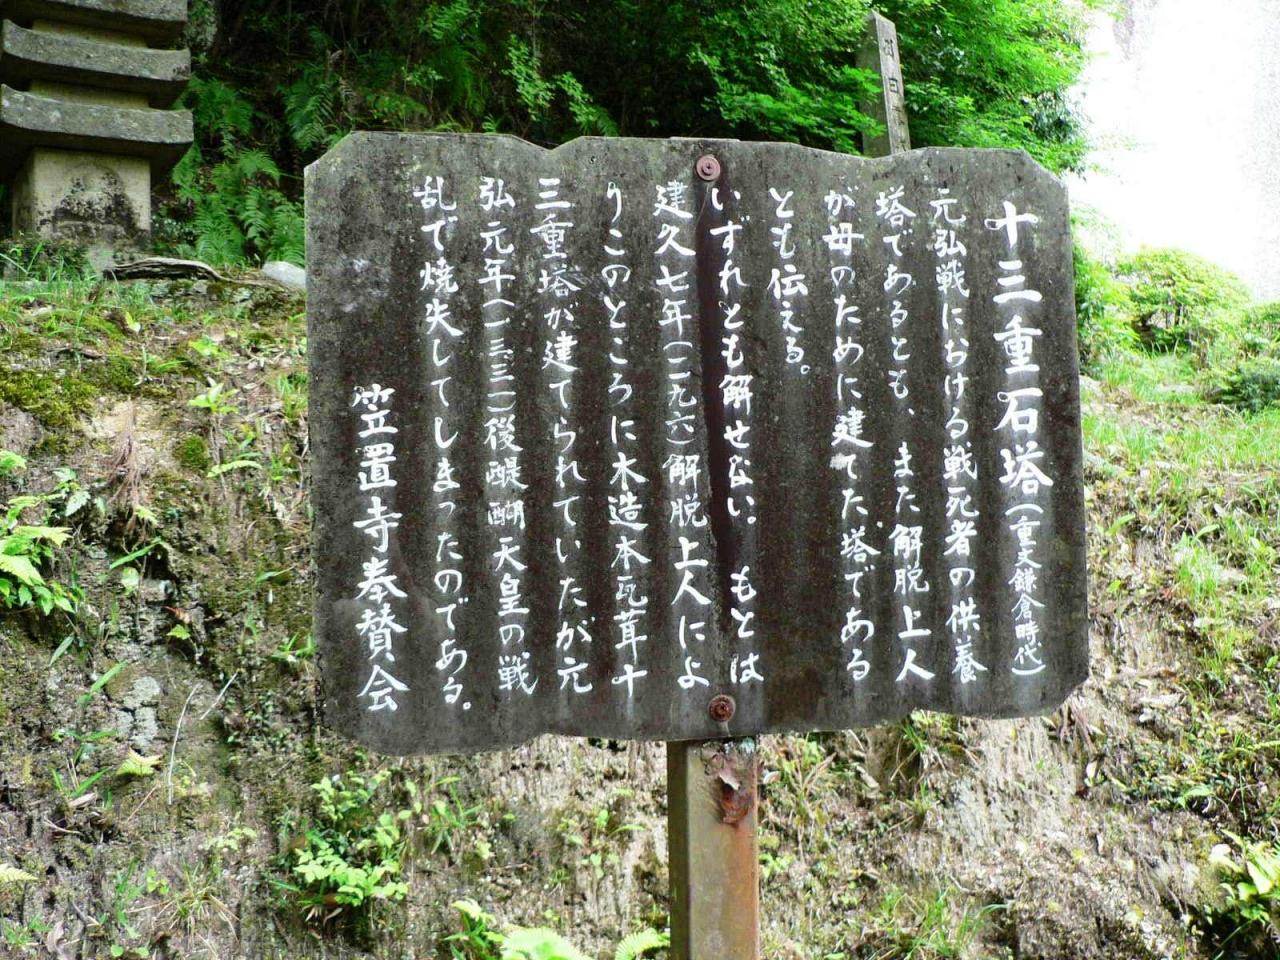 十三重石塔(重文鎌倉時代)
元弘戦における戦死者の供養
塔であるとも、また解脱上人
が母のために建てた塔である
とも伝える。
いずれとも解せない。もとは
建久七年(一一九六)解脱上人によ
りこのところに木造本瓦葺十
三重塔が建てられていたが元
弘元年(一三三一)後醍醐天皇の戦
乱で焼失してしまったのである。
笠置寺奉賛会